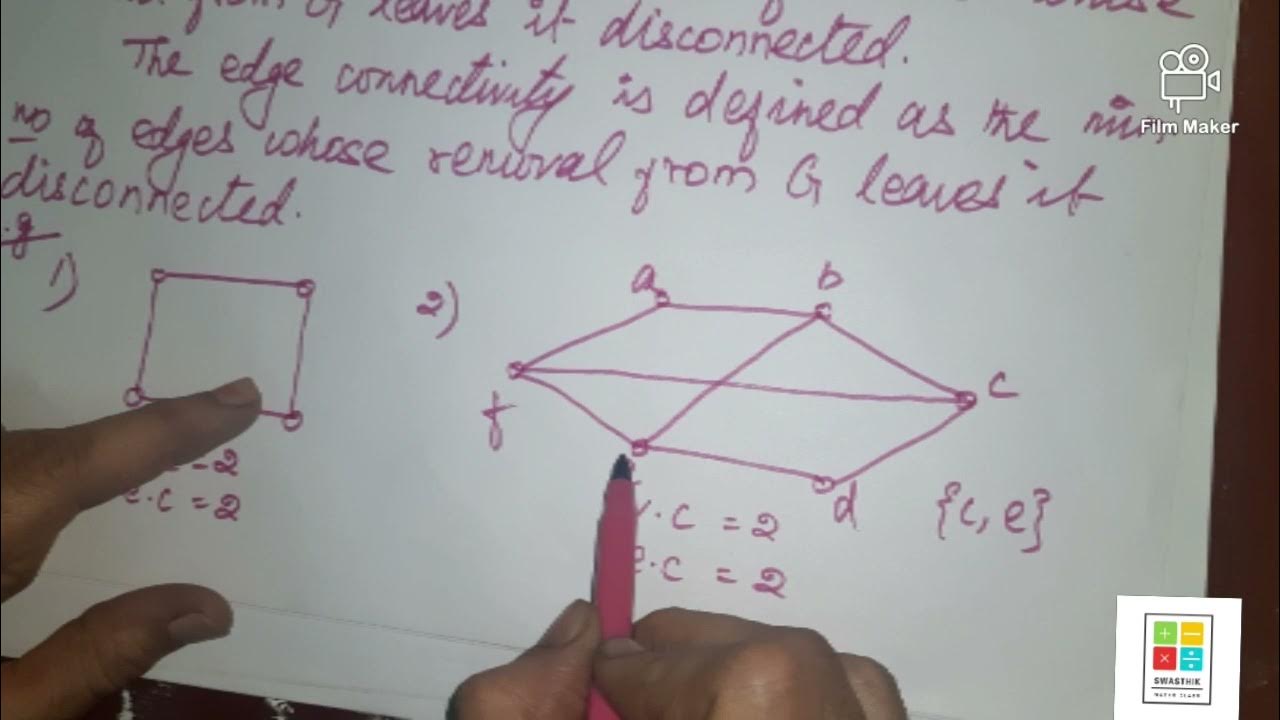 from G leaves it disconnected.
The edge connectivity is defined as the min
no of edges whose removal from G leaves it
disconnected.
1)
2)
a
b
f
c
d
{c, e}
-2
e.c = 2
v.c = 2
e.c = 2
Film Maker
SWASTHIK